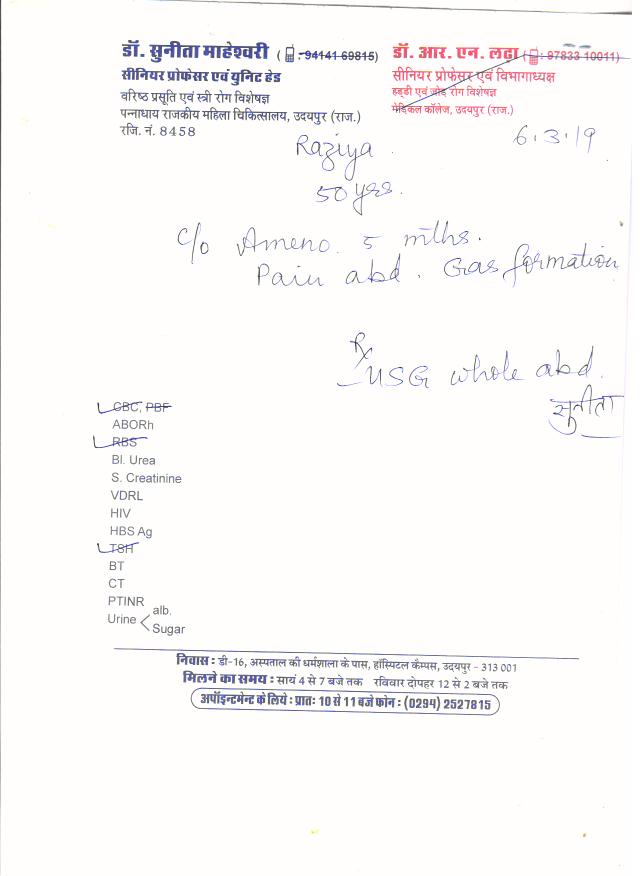 डॉ. सुनीता माहेश्वरी ( : 94141 69815)
सीनियर प्रोफेसर एवं युनिट हेड
वरिष्ठ प्रसूति एवं स्त्री रोग विशेषज्ञ
पन्नाधाय राजकीय महिला चिकित्सालय, उदयपुर (राज.)
रजि. नं. 8458
डॉ. आर. एन. लढ़ा ( : 97833 10011)
सीनियर प्रोफेसर एवं विभागाध्यक्ष
हड्डी एवं जोड़ रोग विशेषज्ञ
मेडिकल कॉलेज, उदयपुर (राज.)
6.3.19
Raziya
50 yrs.
c/o Ameno. 5 mths.
Pain abd. Gas formation
Rx
USG whole abd.
सुनीता
CBC, PBF
ABORh
RBS
Bl. Urea
S. Creatinine
VDRL
HIV
HBS Ag
TSH
BT
CT
PTINR
Urine < alb.
Sugar
निवास : डी-16, अस्पताल की धर्मशाला के पास, हॉस्पिटल कैम्पस, उदयपुर - 313 001
मिलने का समय : सायं 4 से 7 बजे तक रविवार दोपहर 12 से 2 बजे तक
अपॉइन्टमेन्ट के लिये : प्रातः 10 से 11 बजे फोन : (0294) 2527815